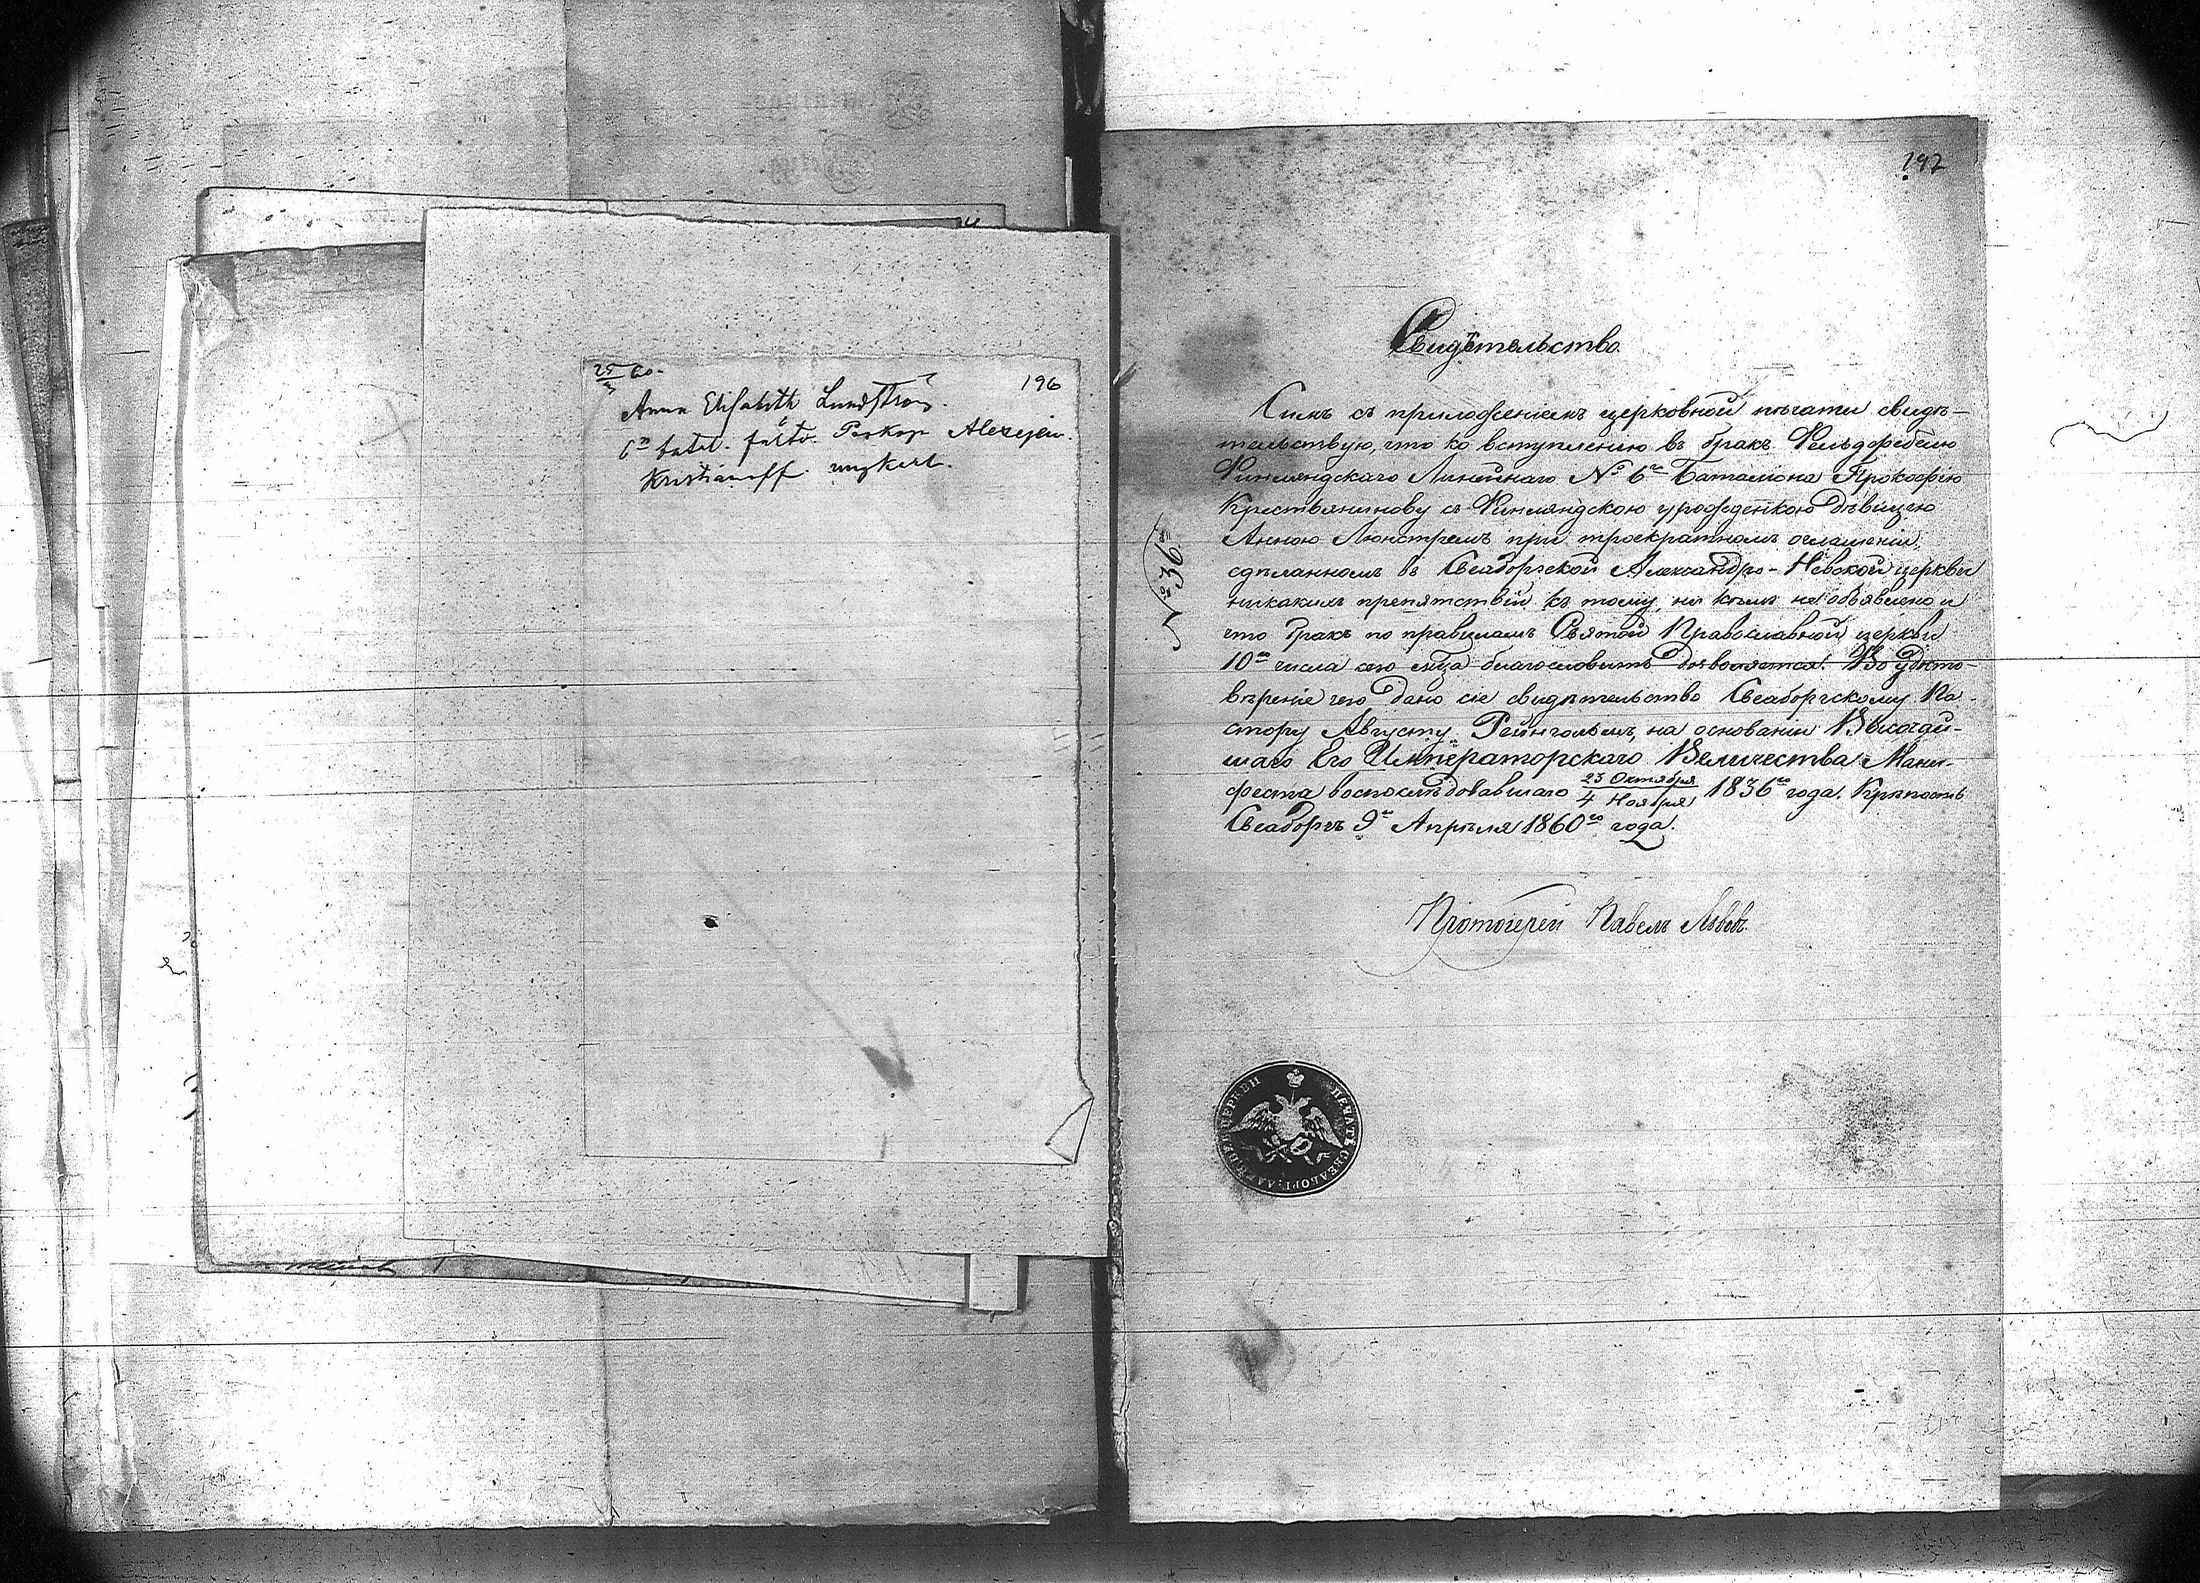 25/3 60.
196
Anna Elisabeth Lundström.
6n batal. fältv. Prokop Alexejew.
Kristianoff ungkarl.
197
Свидѣтельство.
№ 36й
Симъ съ приложеніемъ церковной печати свидѣ-
тельствую, что ко вступленію въ бракъ Фельдфебелю
Финляндскаго Линейнаго № 6го Баталіона Прокофію
Крестьянинову съ Финляндскою уроженкою дѣвицею
Анною Люнстремъ при троекратномъ оглашеніи,
сдѣланномъ въ Свеаборгской Александро-Невской церкви
никакихъ препятствій къ тому, ни кѣмъ не объявлено и
что бракъ по правиламъ Святой Православной церкви
10го числа сего мѣсяца благословить дозволяется. Во удосто-
вѣреніе чего дано сіе свидѣтельство Свеаборгскому Па-
стору Августу Рейнгольму, на основаніи Высочай-
шаго Его Императорскаго Величества Мани-
феста воспослѣдовавшаго 23 Октября / 4 Ноября 1836го года. Крѣпость
Свеаборгъ 9го Апрѣля 1860го года.
Протоіерей Павелъ Львовъ
ПЕЧАТЬ СВЕАБОРГ: ЦЕРКВИ